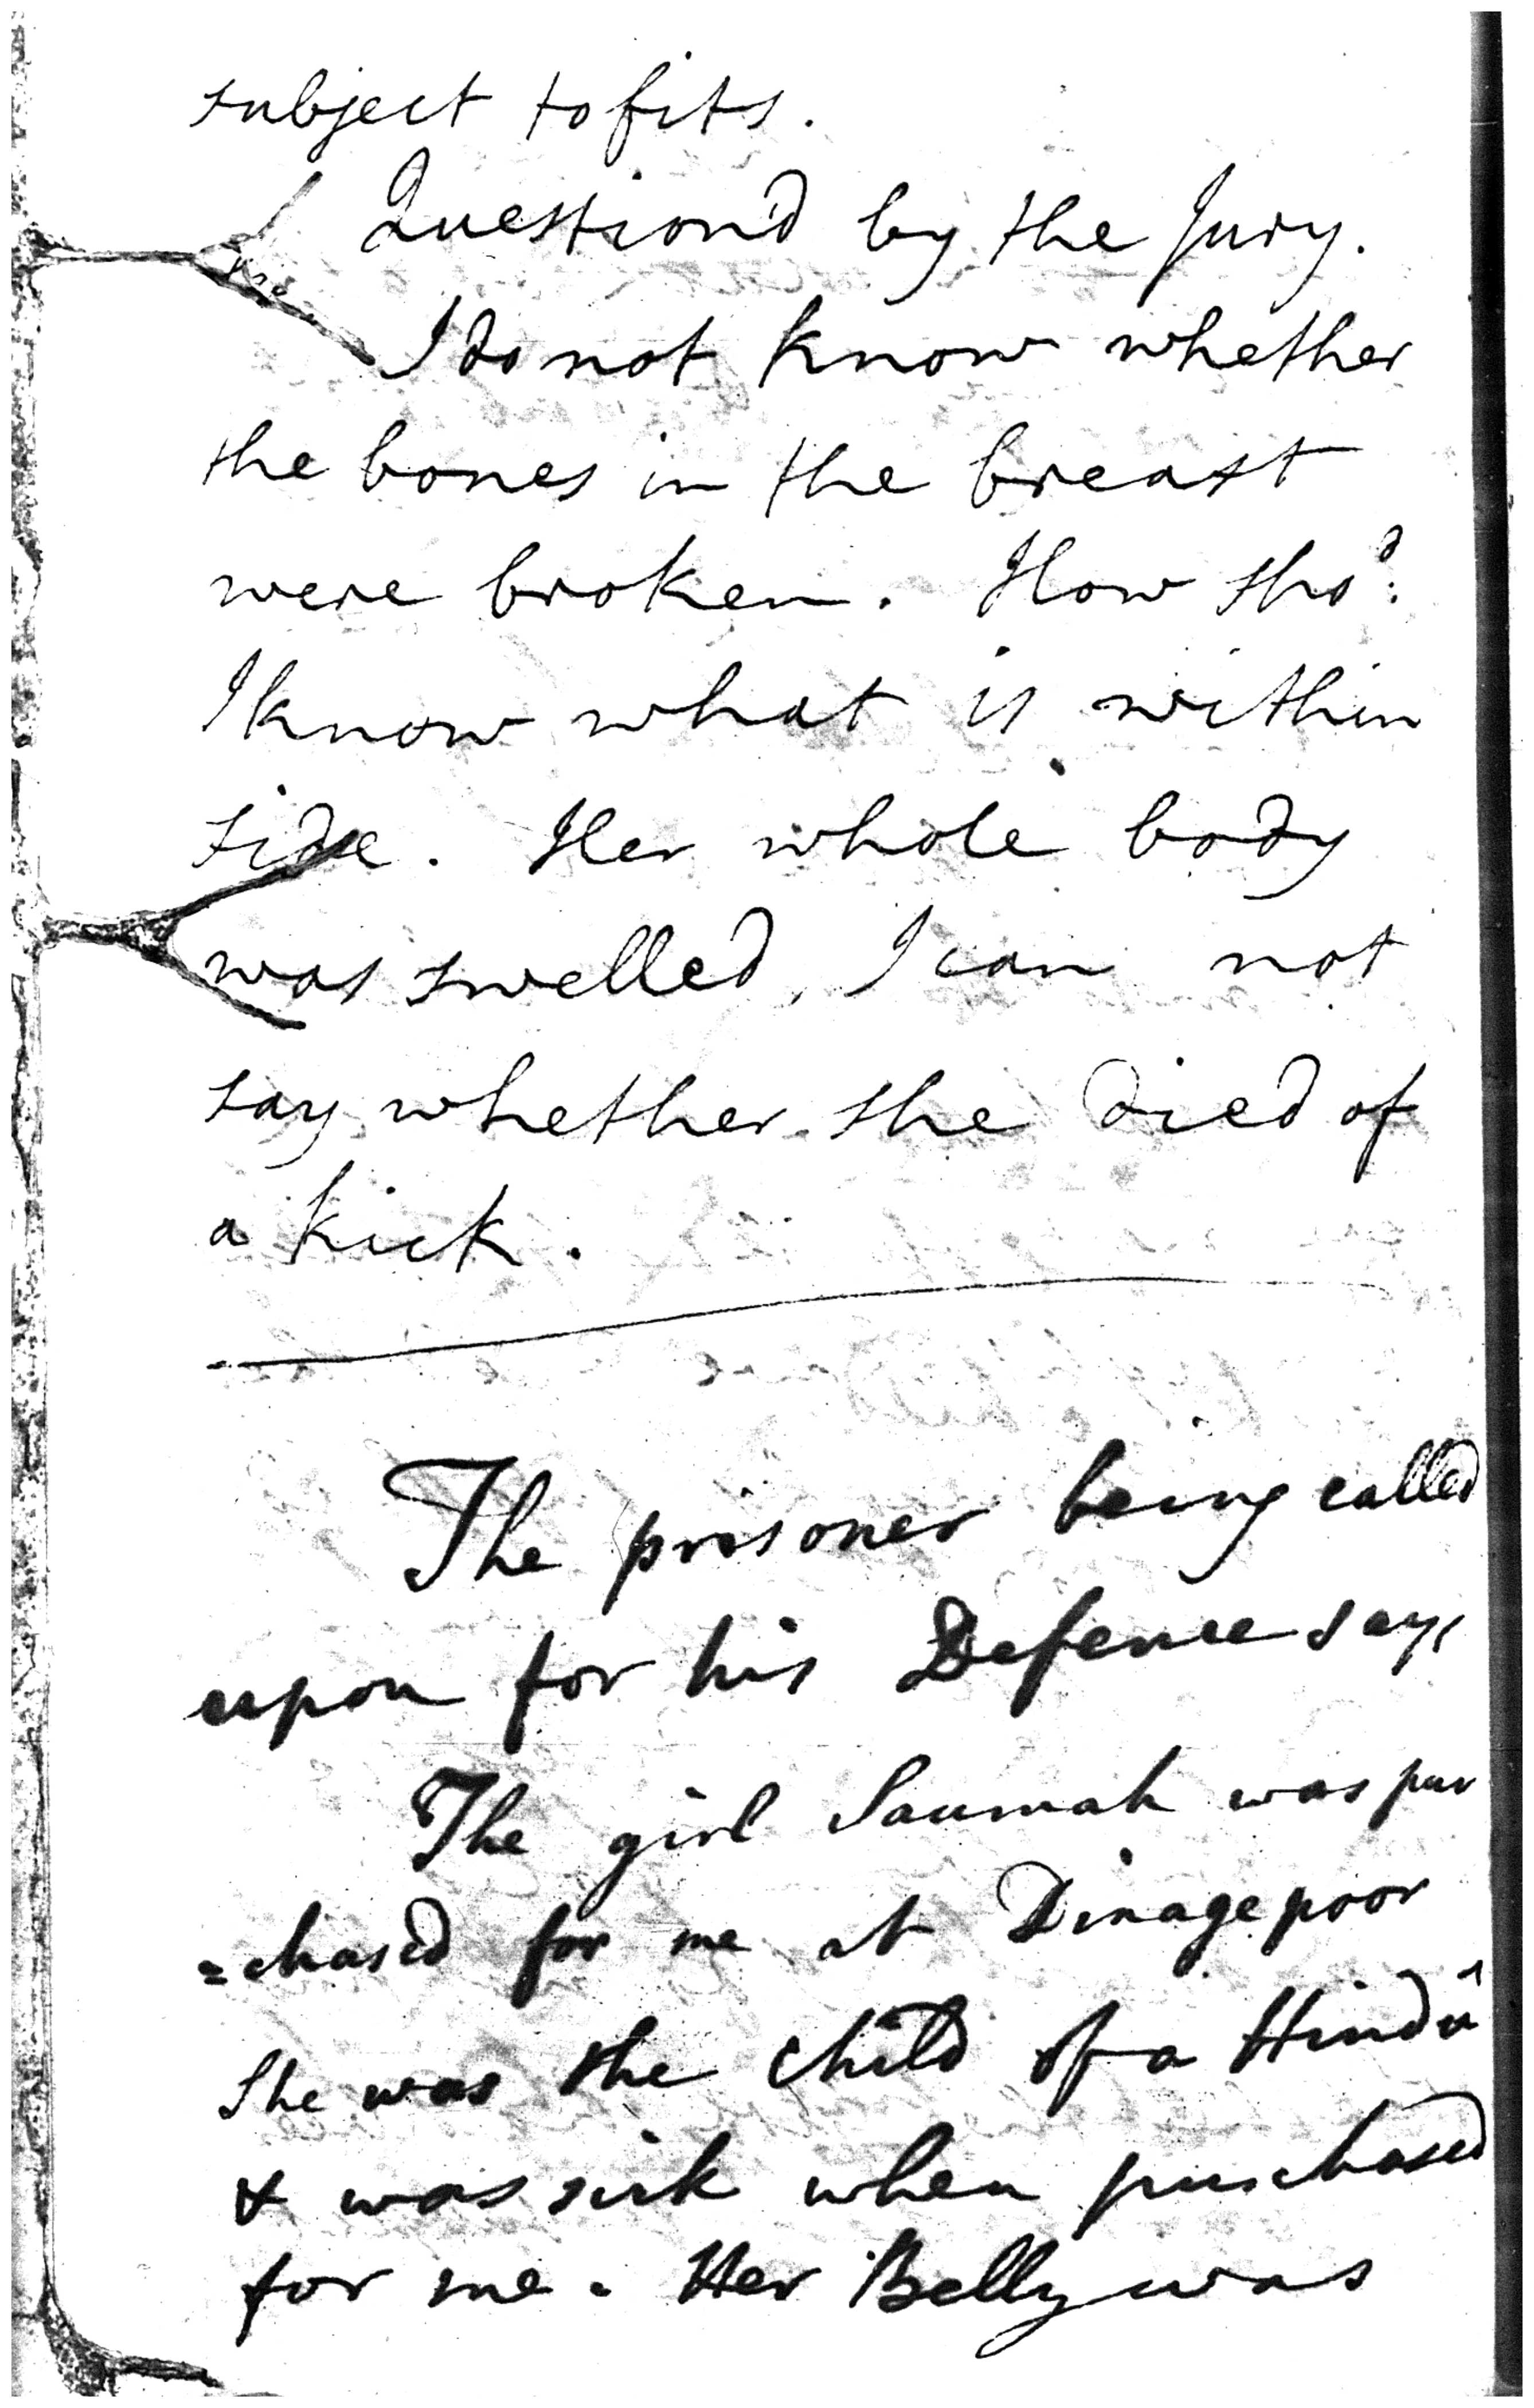 subject to fits.
Question'd by the Jury.
I do not know whether
the bones in the breast
were broken. How sho.d
I know what is within
side. Her whole body
was swelled, I can not
say whether she died of
a kick.
The prisoner being called
upon for his Defence says
The girl Saumah was pur
=chased for me at Dinagepoor
She was the child of a Hindû
& was sick when purchased
for me. Her Belly was